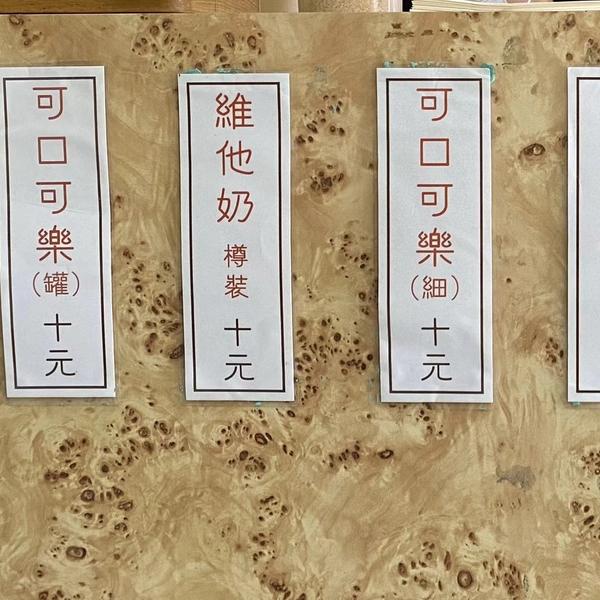 可口可樂
（罐）
十元
維他奶
樽裝
十元
可口可樂
（細）
十元